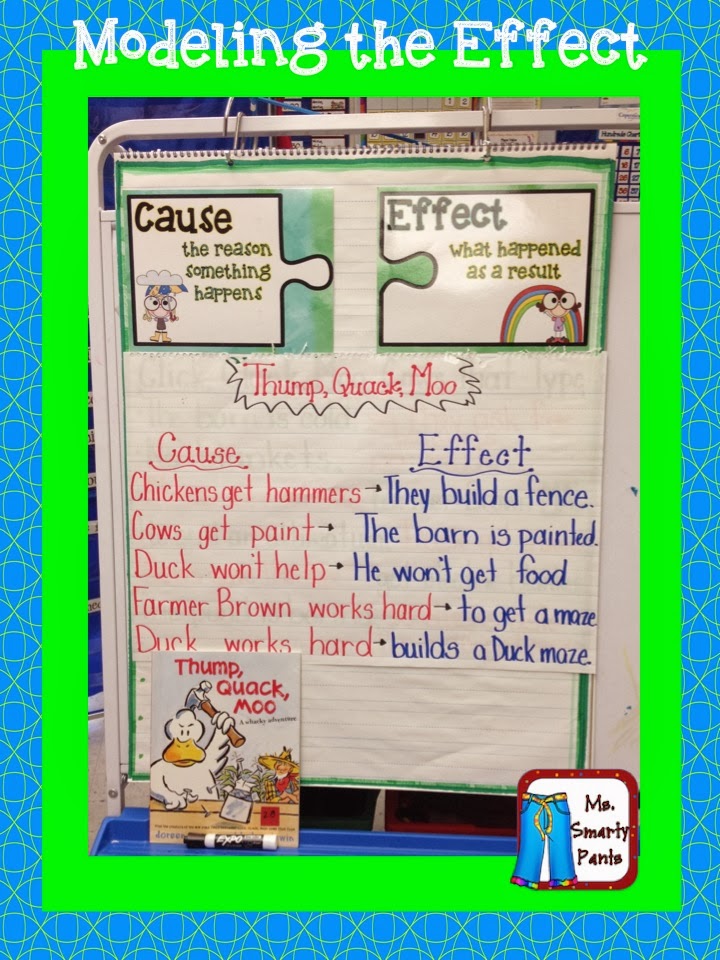 Modeling the Effect
Cause
the reason
something
happens
Effect
what happened
as a result
Thump, Quack, Moo
Cause Effect
Chickens get hammers → They build a fence.
Cows get paint → The barn is painted.
Duck won't help → He won't get food
Farmer Brown works hard → to get a maze
Duck works hard → builds a Duck maze.
Thump,
Quack,
Moo
A whacky adventure
doreen win
EXPO
Ms.
Smarty
Pants
Hundreds Chart